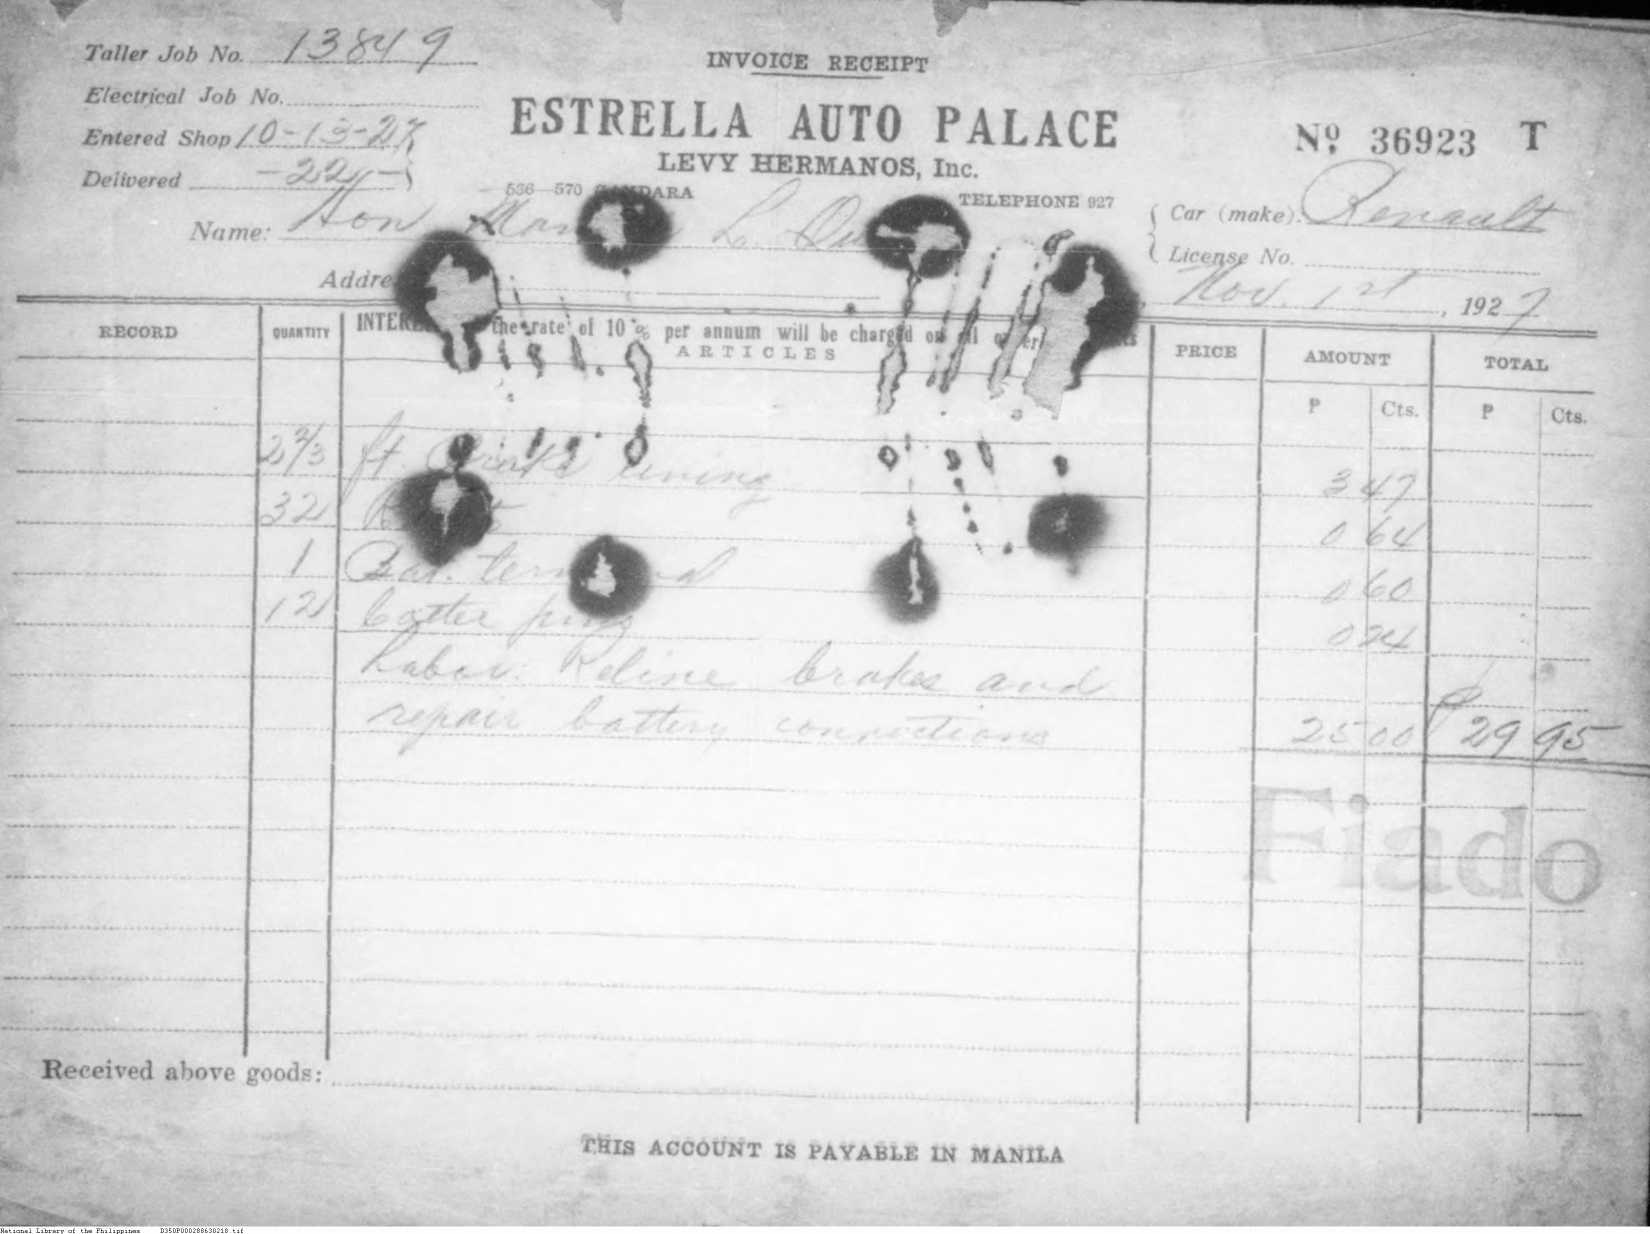 Taller Job No. 13849
INVOICE RECEIPT
Electrical Job No.
ESTRELLA AUTO PALACE
Entered Shop 10-13-27
Nº 36923 T
LEVY HERMANOS, Inc.
Delivered -22-
536-570
TELEPHONE 927
Car (make): Renault
Name: Hon L.
License No.
Nov. 1st, 1927
RECORD
QUANTITY
the rate of 10% per annum will be charged on
ARTICLES
PRICE
AMOUNT
TOTAL
₱ Cts. ₱ Cts.
2 2/3 ft. lining 3 47
32 0 64
1 Bat. 0 60
12 0 24
Labor: Reline brakes and
repair battery connections 25 00 ₱ 29 95
Fiado
Received above goods:
THIS ACCOUNT IS PAYABLE IN MANILA
National Library of the Philippines D350P000288630218.tif